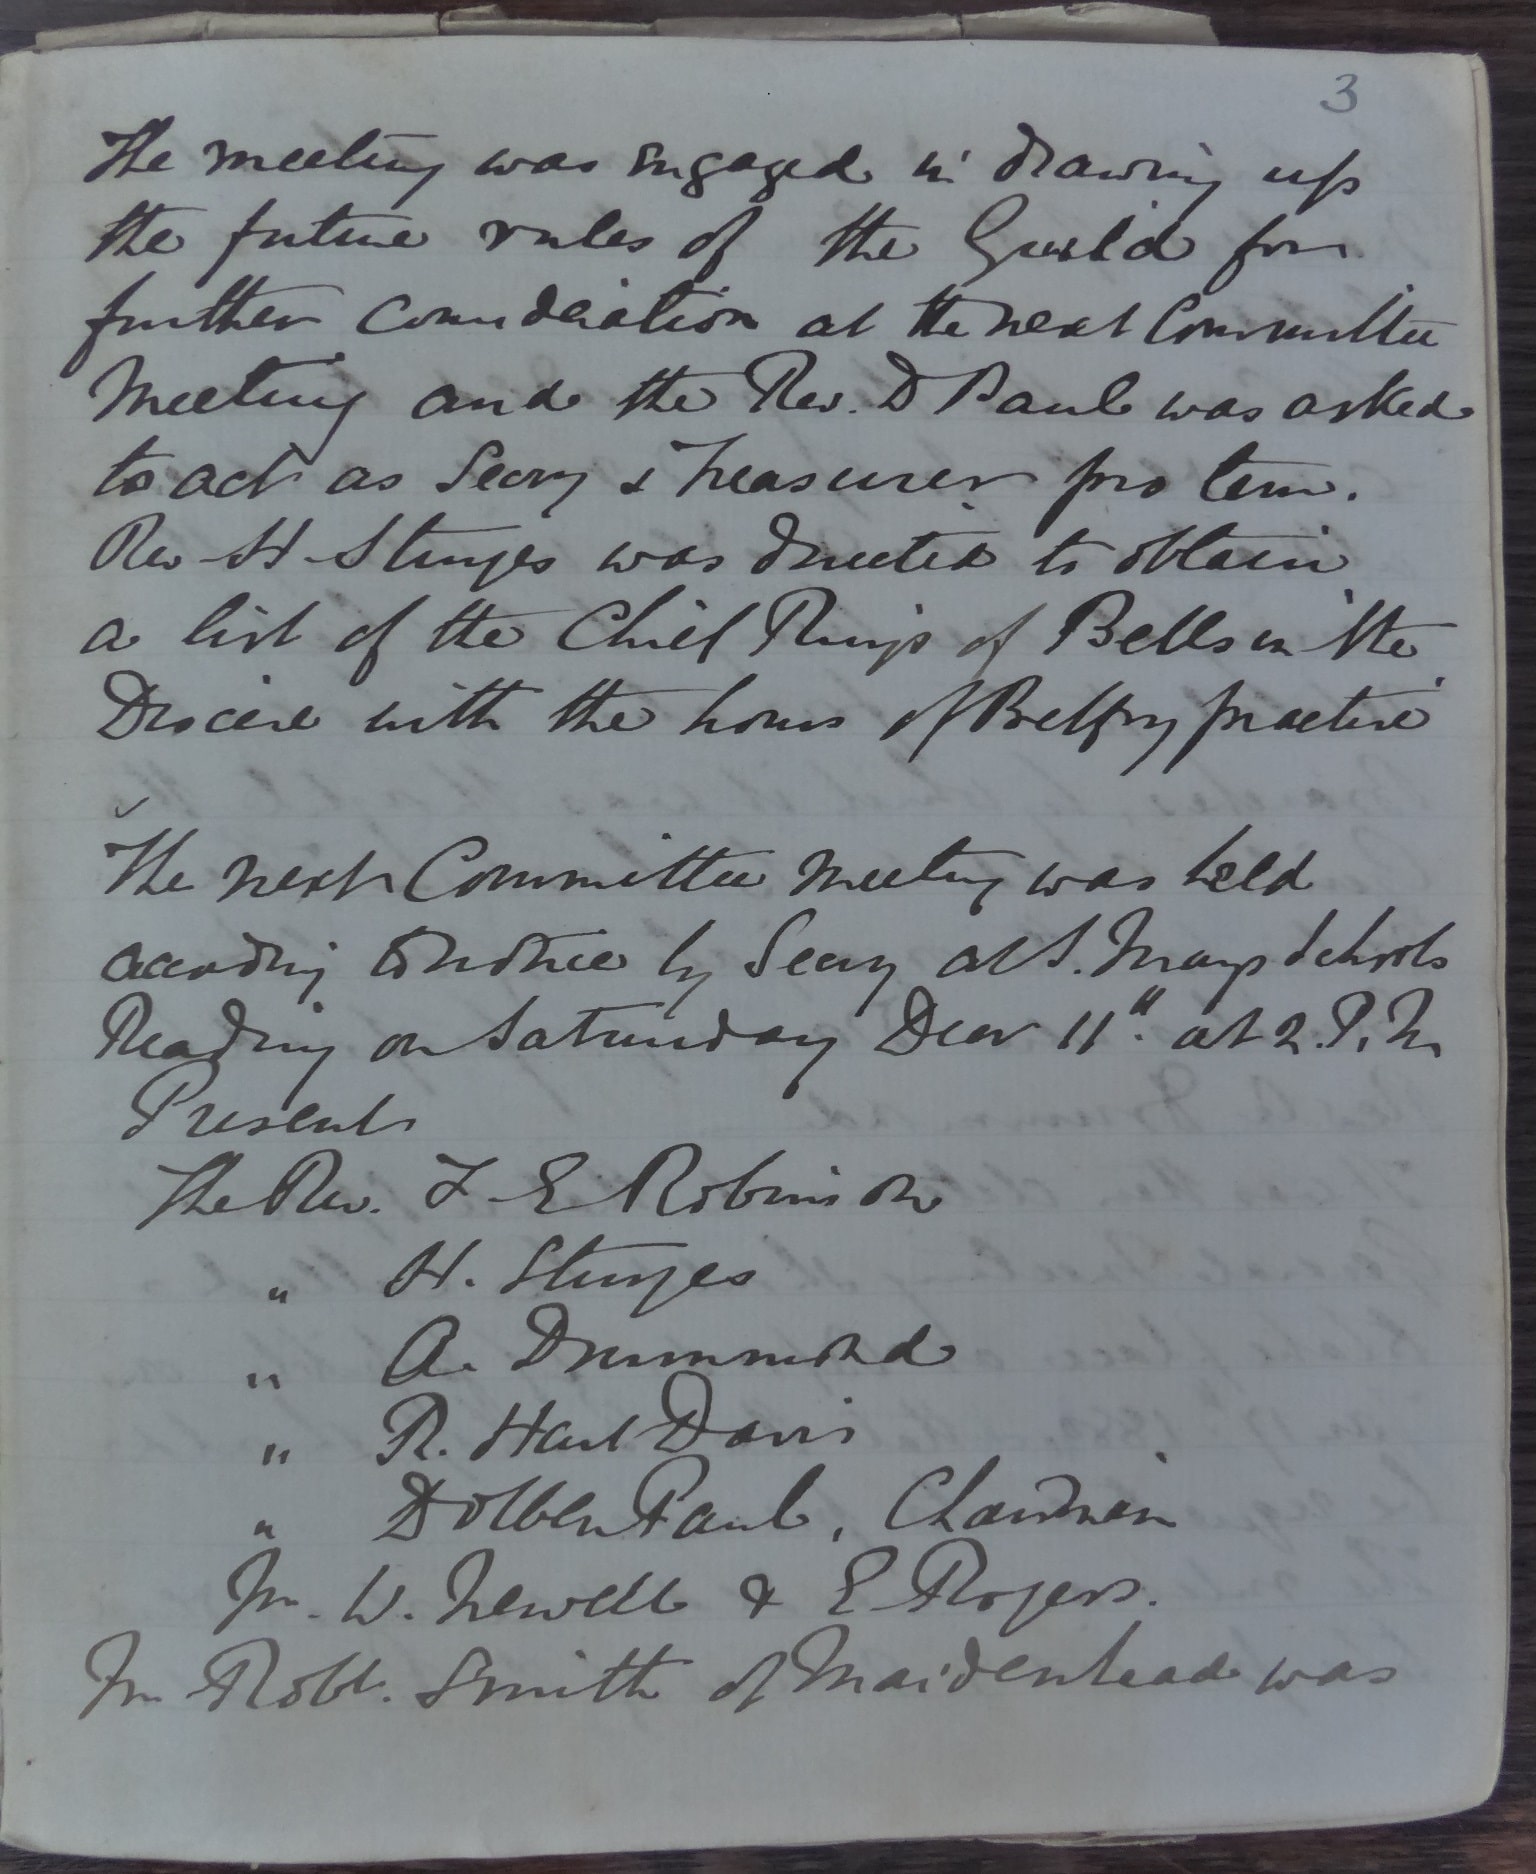 3
The meeting was engaged in drawing up
the future rules of the Guild for
further consideration at the next Committee
Meeting and the Rev. D Paul was asked
to act as Secry & Treasurer pro tem.
Rev H Sturges was directed to obtain
a list of the Chief Rings of Bells in the
Diocese with the hours of Belfry practice
The next Committee Meeting was held
according to notice by Secry at S. Marys Schools
Reading on Saturday Decr 11th at 2. P. M
Present
The Rev. F E Robinson
" H. Sturges
" A. Drummond
" R. Hart Davis
" Dolben Paul, Chairman
Mr. W. Newell & E Rogers.
Mr Robt. Smith of Maidenhead was